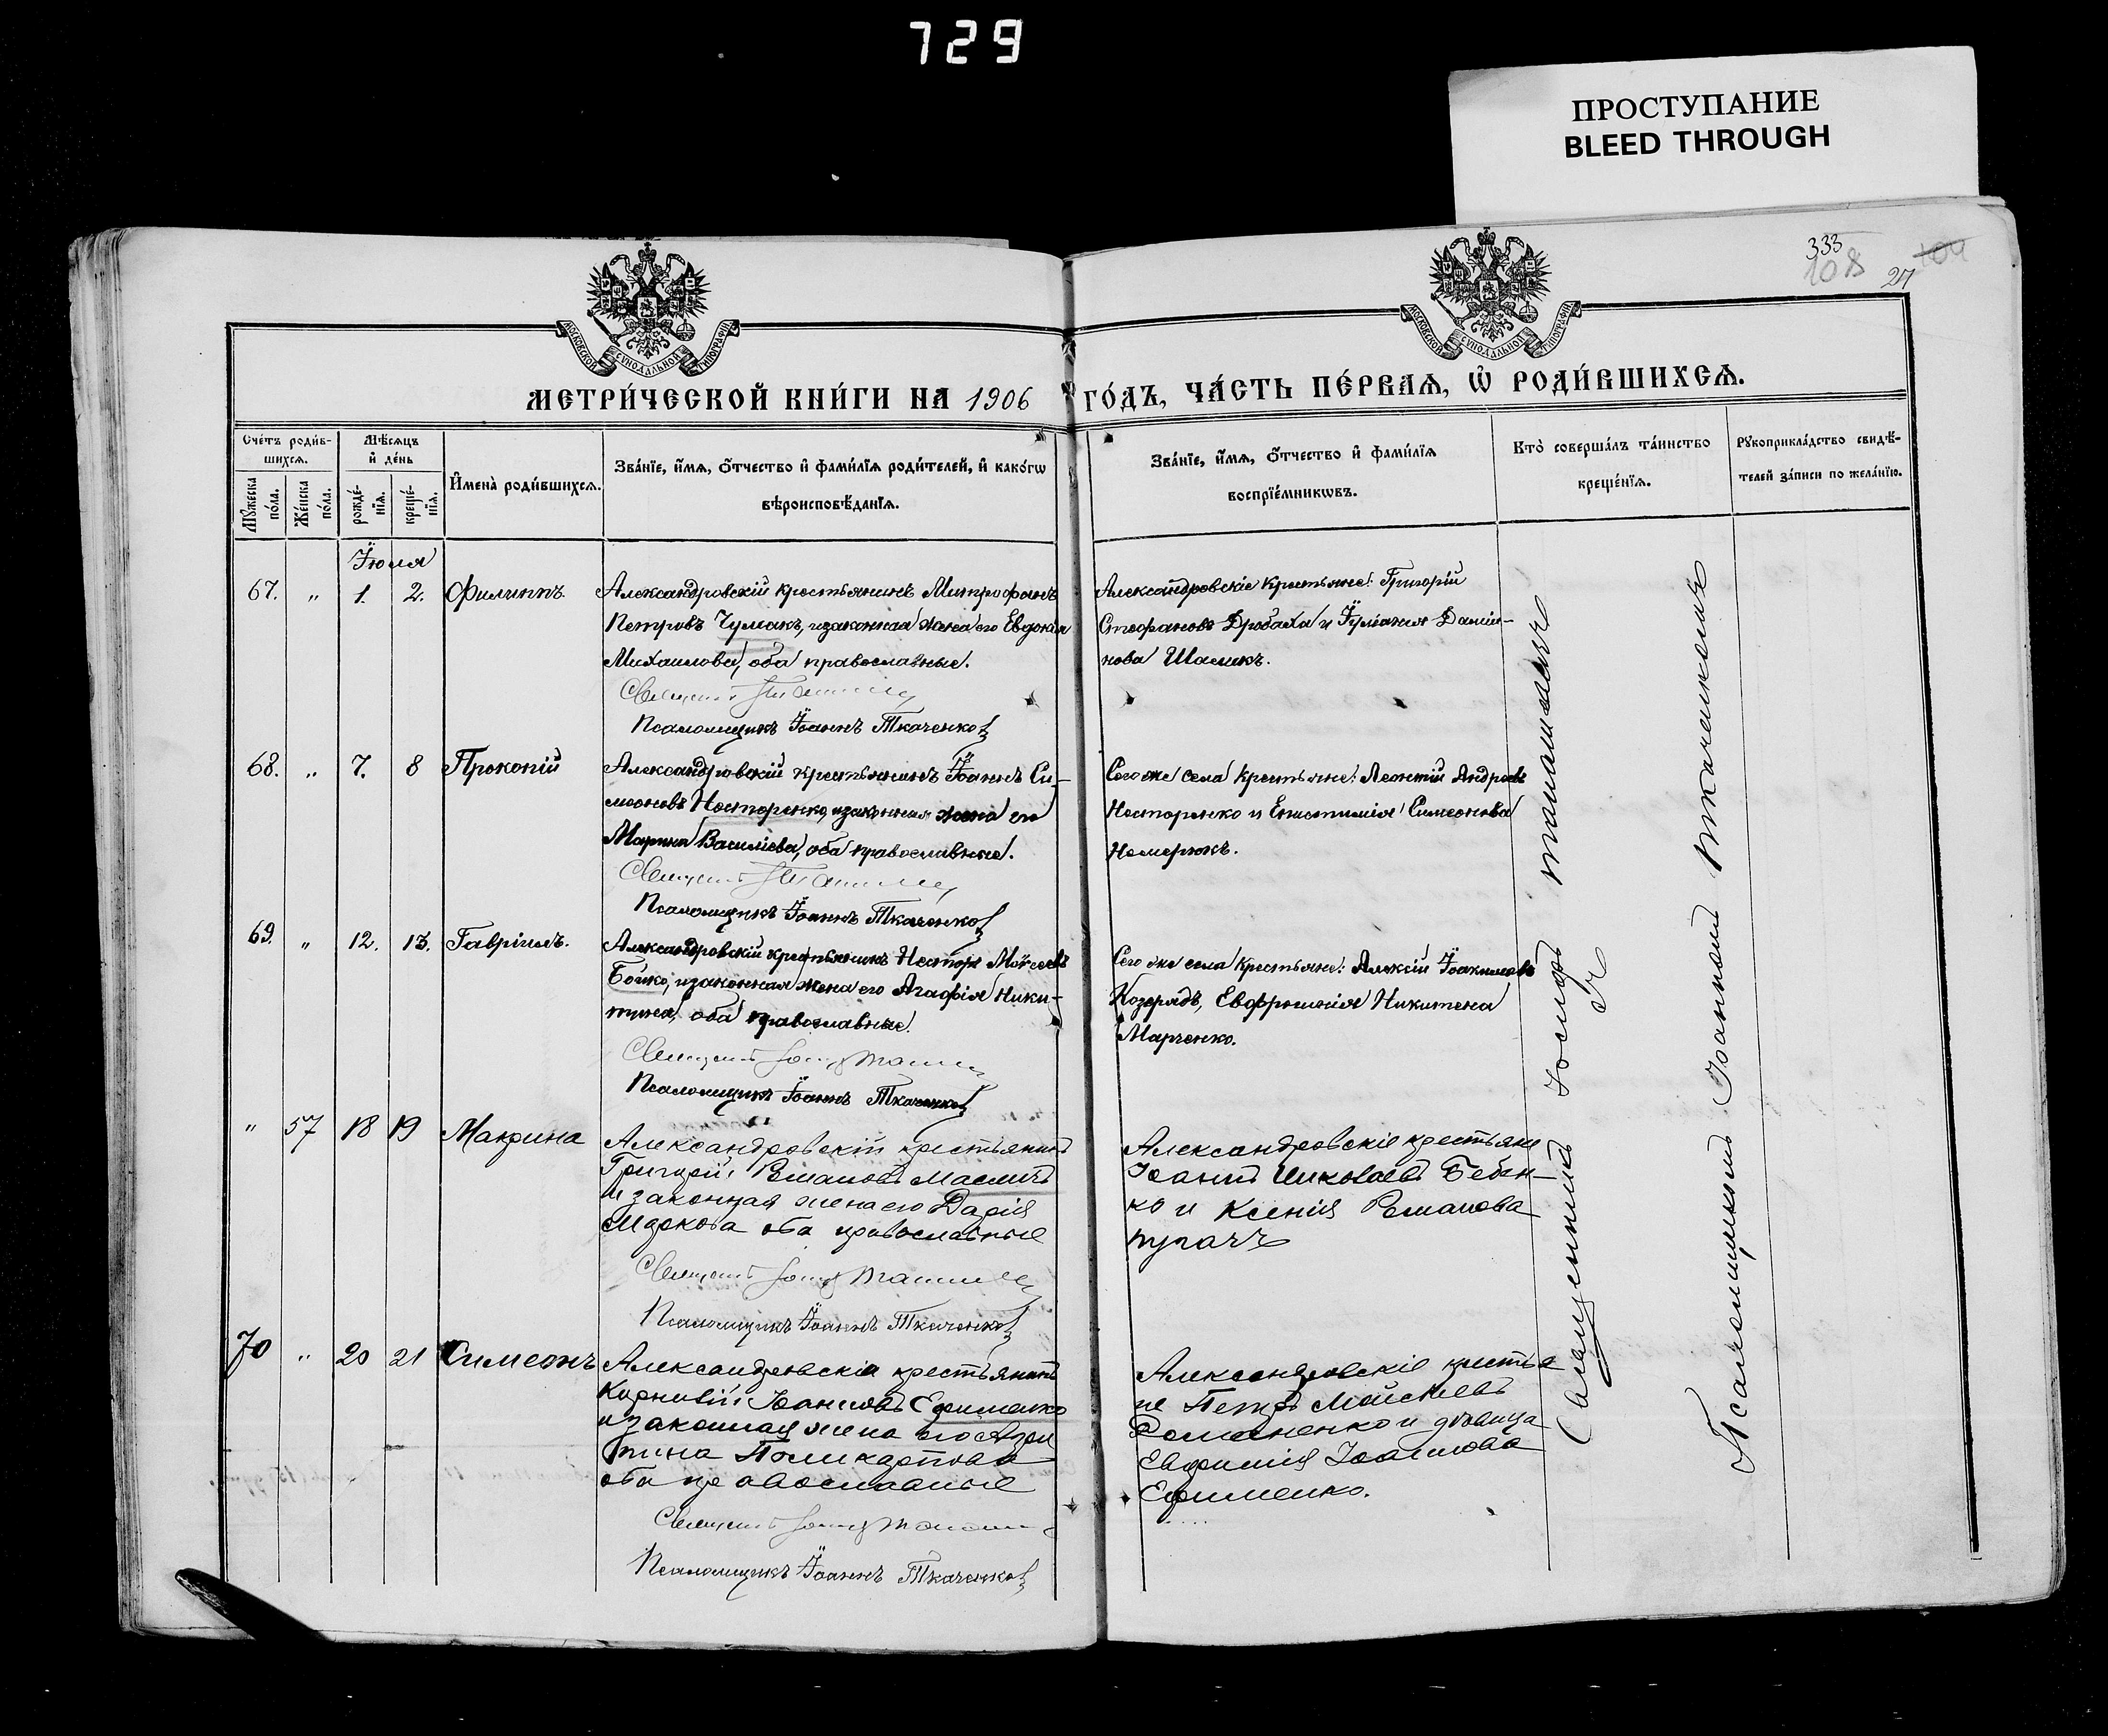 729
ПРОСТУПАНИЕ
BLEED THROUGH
333
108
104
27
МОСКОВСКОЙ СѴНОДАЛЬНОЙ ТИПОГРАФІИ
МОСКОВСКОЙ СѴНОДАЛЬНОЙ ТИПОГРАФІИ
МЕТРИ́ЧЕСКОЙ КНИ́ГИ НА 1906 ГО́ДЪ, ЧА́СТЬ ПЕ́РВАѦ, Ѡ҆ РОДИ́ВШИХСѦ.
Сче́тъ роди́в-
шихсѧ.
Мꙋ́жеска по́ла.
Же́нска по́ла.
Мѣ́сѧцъ
и҆ де́нь
рожде́-
нїѧ.
креще́-
нїѧ.
И҆мена̀ роди́вшихсѧ.
Зва́нїе, и҆́мѧ, ѻ҆́тчество и҆ фами́лїѧ роди́телей, и҆ како́гѡ
вѣроисповѣ́данїѧ.
Зва́нїе, и҆́мѧ, ѻ҆́тчество и҆ фами́лїѧ
воспрїе́мникѡвъ.
Кто̀ соверша́лъ та́инство
креще́нїѧ.
Рꙋкоприкла́дство свидѣ́-
телей за́писи по жела́нїю.
Їюля
67. " 1. 2. Филиппъ
Александровскій крестьянинъ Митрофанъ
Петровъ Чумакъ, и законная жена его Евдокія
Михаилова, оба православные.
Священ
Псаломщикъ Їоаннъ Ткаченко
Александровскіе крестьяне: Григорій
Стефановъ Дробаха и Їуліанія Даміи-
нова Шалыкъ.
68. " 7. 8 Прокопій
Александровскій крестьянинъ Їоаннъ Си-
меоновъ Несторенко, и законная жена его
Марина Василіева, оба православные.
Священ
Псаломщикъ Їоаннъ Ткаченко
Сего же села крестьяне: Леонтій Андреевъ
Несторенко и Епистимія Симеонова
Немерюкъ.
69. " 12. 13. Гавріилъ.
Александровскій крестьянинъ Несторъ Моѵсеевъ
Бойко, и законная жена его Агафія Ники-
тина, оба православные.
Священ
Псаломщикъ Їоаннъ Ткаченко
Сего же села крестьяне: Алексій Їоакимовъ
Козорядъ, Евфросинія Никитена
Марченко.
" 57 18 19 Макрина
Александровскій крестьянинъ
Григорій Романовъ Масличъ
и законная жена его Дарія
Маркова оба православные
Священ
Псаломщикъ Їоаннъ Ткаченко
Александровскіе крестьяне
Іоанъ Николаевъ Бебен-
ко и Ксенія Романова
Пугачъ
70 " 20 21 Симеонъ
Александровскій крестьянинъ
Корнилій Іоанновъ Ефименко
и законная жена его
Поликарпова
оба православные
Священ
Псаломщикъ Їоаннъ Ткаченко
Александровскіе крестья
не Петръ Мойсеевъ
Романенко и дѣвица
Евфимія Іоаннова
Ефименко.
Священникъ Іосифъ
Псаломщикъ Іоаннъ Ткаченко